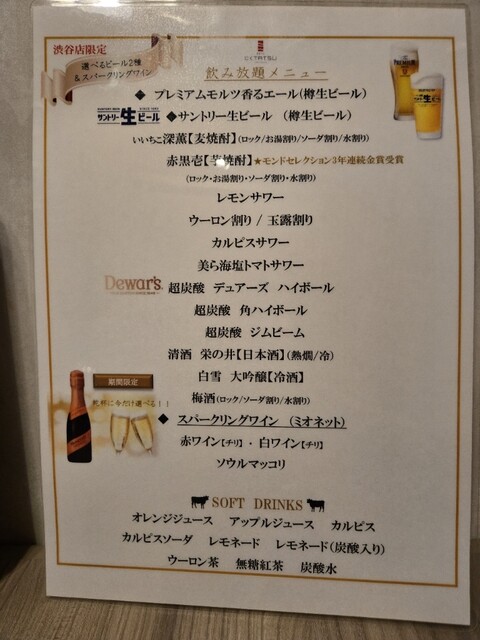 渋谷店限定
選べるビール2種
&スパークリングワイン
飲み放題メニュー
◆ プレミアムモルツ香るエール(樽生ビール)
サントリー生ビール
◆サントリー生ビール (樽生ビール)
いいちこ深薫【麦焼酎】(ロック/お湯割り/ソーダ割り/水割り)
赤黒壱【芋焼酎】★モンドセレクション3年連続金賞受賞
(ロック・お湯割り・ソーダ割り・水割り)
レモンサワー
ウーロン割り / 玉露割り
カルピスサワー
美ら海塩トマトサワー
Dewar's
超炭酸 デュアーズ ハイボール
超炭酸 角ハイボール
超炭酸 ジムビーム
清酒 栄の井【日本酒】(熱燗/冷)
白雪 大吟醸【冷酒】
期間限定
梅酒(ロック/ソーダ割り/水割り)
乾杯に今だけ選べる!!
◆ スパークリングワイン (ミオネット)
赤ワイン【チリ】・白ワイン【チリ】
ソウルマッコリ
SOFT DRINKS
オレンジジュース アップルジュース カルピス
カルピスソーダ レモネード レモネード(炭酸入り)
ウーロン茶 無糖紅茶 炭酸水